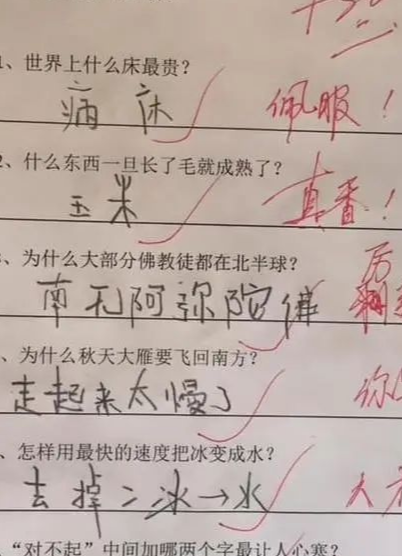 1、世界上什么床最贵？
病床 佩服！
2、什么东西一旦长了毛就成熟了？
玉米 真香！
、为什么大部分佛教徒都在北半球？
南无阿弥陀佛 厉
、为什么秋天大雁要飞回南方？
走起来太慢了 你
、怎样用最快的速度把冰变成水？
去掉冫冰→水 大
“对不起”中间加哪两个字最让人心寒？